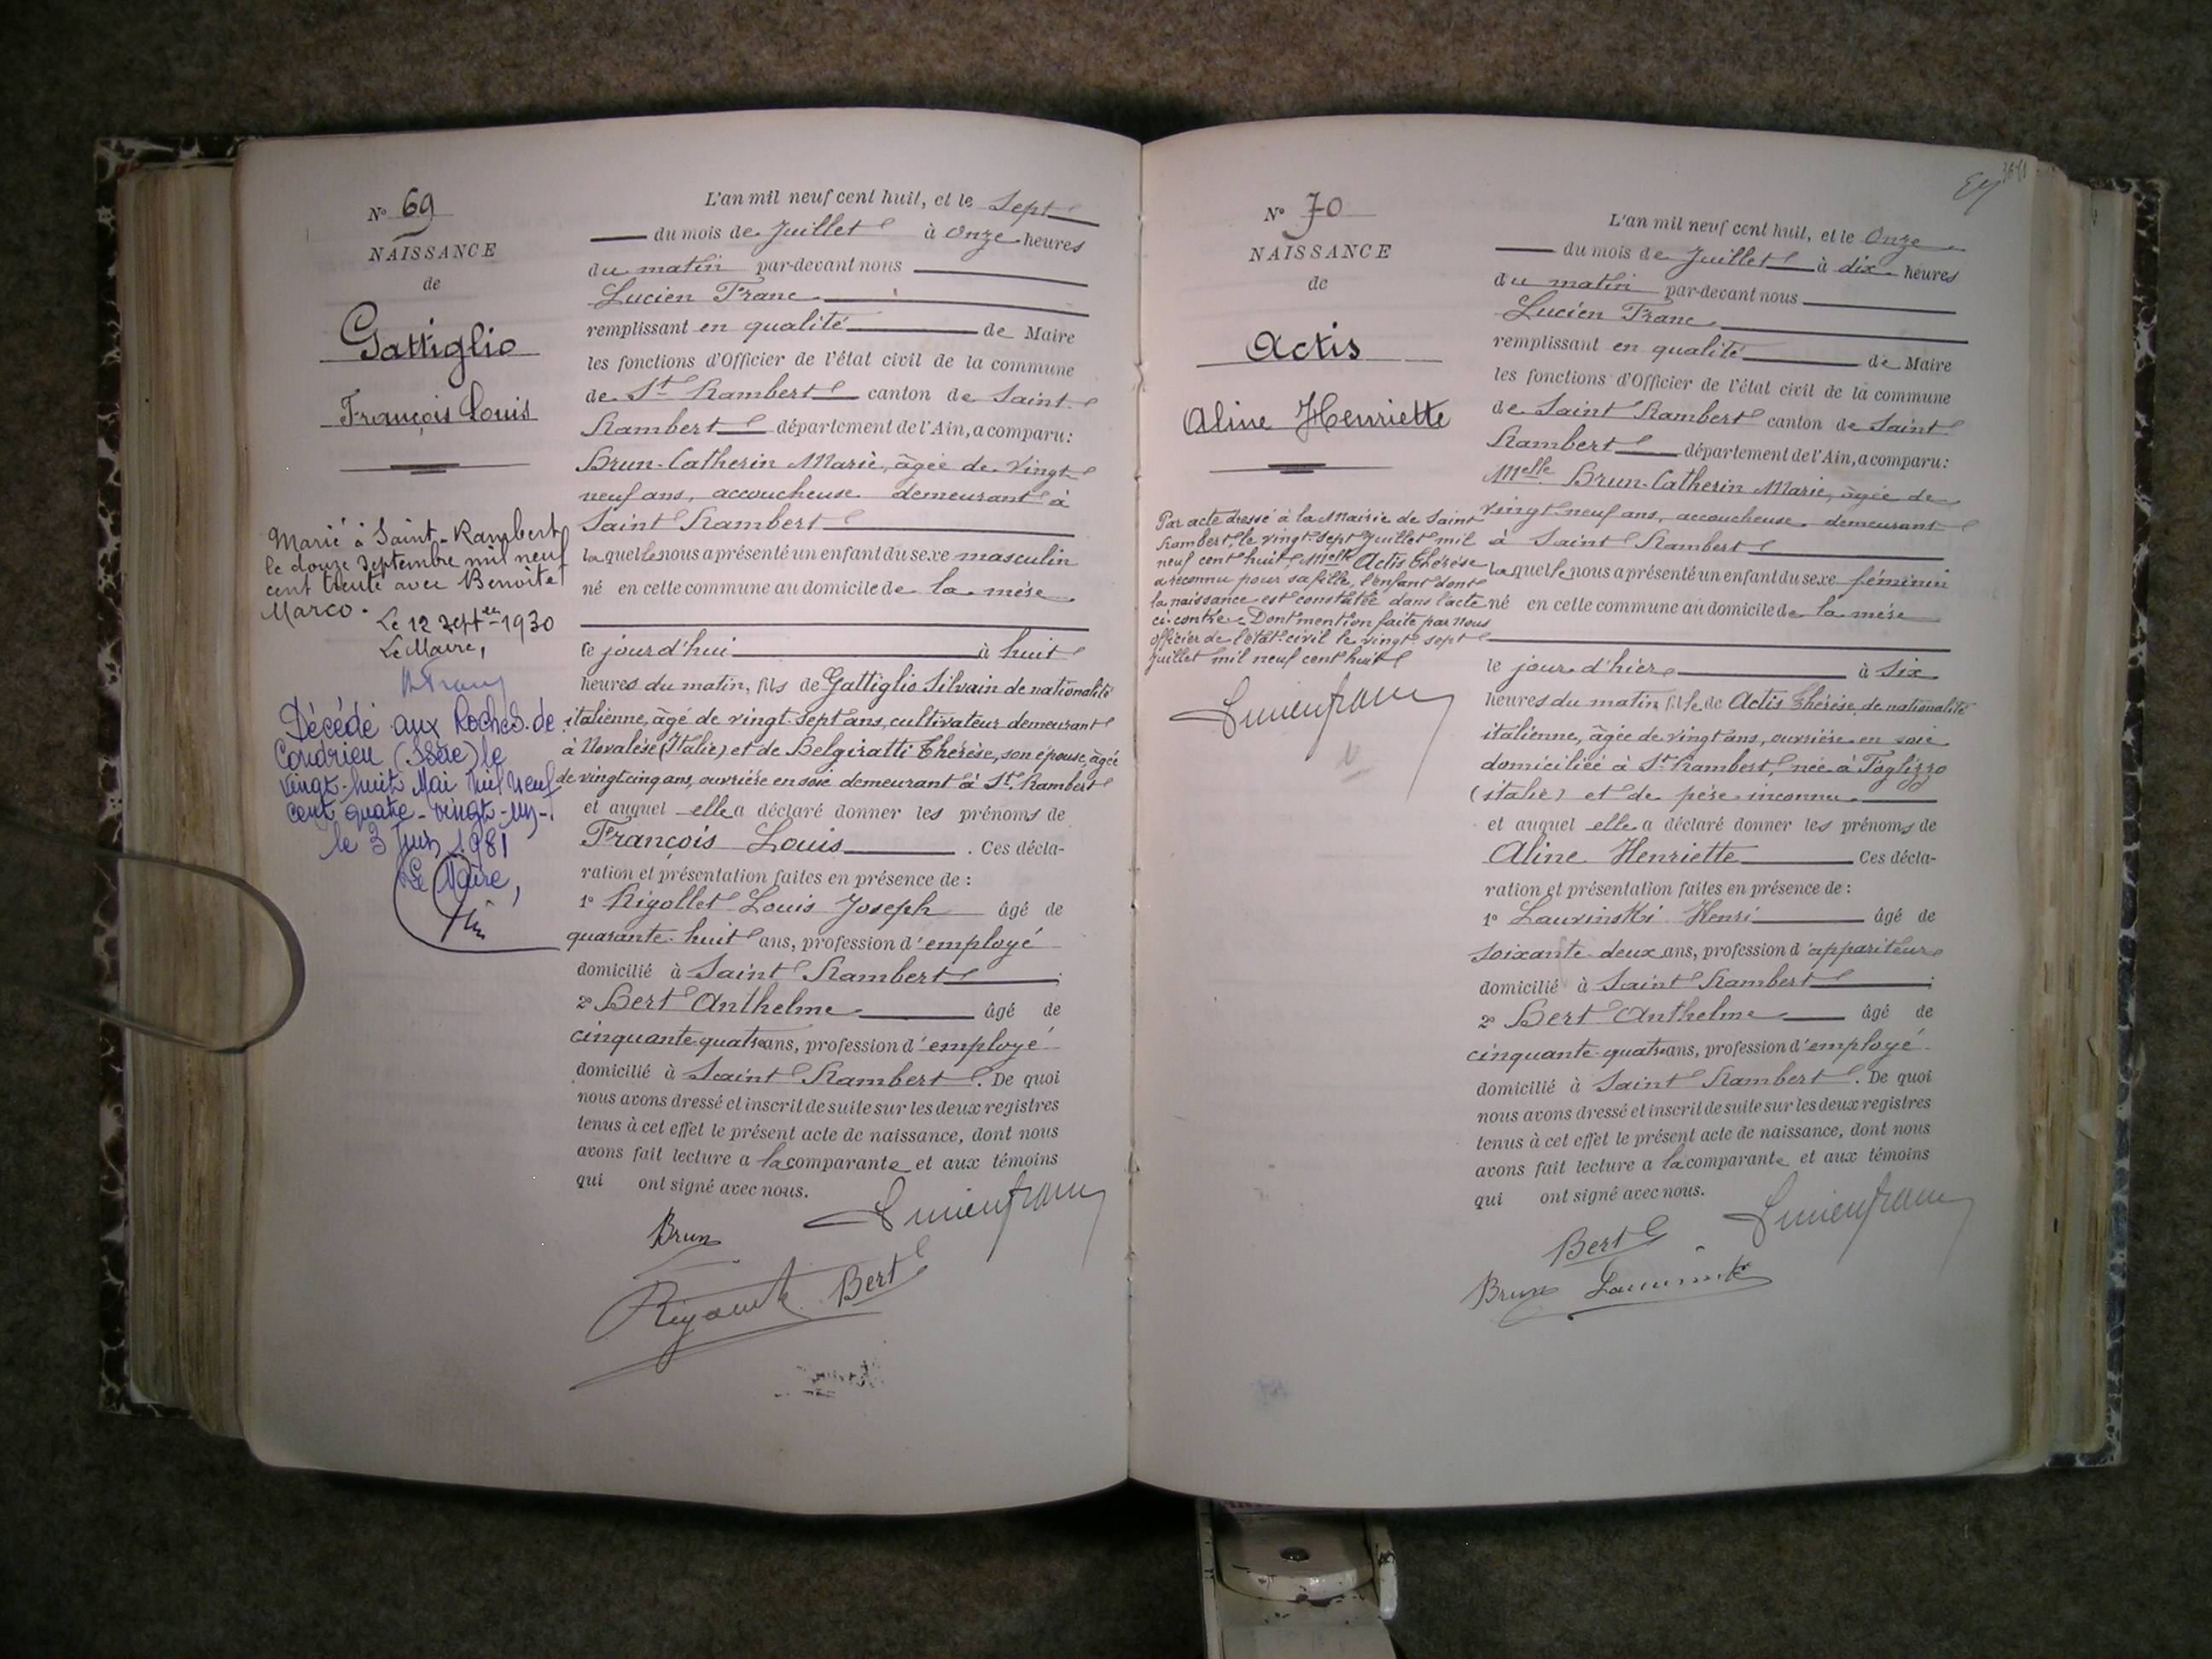 Nº 69
NAISSANCE
de
Gattiglio
François Louis
Marié à Saint-Rambert
le douze Septembre mil neuf
cent trente avec Benoite
Marco.
Le 12 Septbre 1930
Le Maire,
Décédé aux Roches de
Condrieu (Isère) le
vingt-huit Mai mil neuf
cent quatre-vingt-un.
le 3 Juin 1981
Le Maire,
L'an mil neuf cent huit, et le Sept
du mois de Juillet à Onze heures
du matin par-devant nous
Lucien Franc
remplissant en qualité de Maire
les fonctions d'Officier de l'état civil de la commune
de St Rambert canton de Saint
Rambert département de l'Ain, a comparu:
Brun-Catherin Marie, âgée de vingt
neuf ans, accoucheuse demeurant à
Saint Rambert
laquelle nous a présenté un enfant du sexe masculin
né en cette commune au domicile de la mère
ce jourd'hui à huit
heures du matin, fils de Gattiglio Silvain de nationalité
italienne, âgé de vingt sept ans, cultivateur demeurant
à Novalèse (Italie) et de Belgiratti Thérèse, son épouse, âgée
de vingt cinq ans, ouvrière en soie demeurant à St Rambert
et auquel elle a déclaré donner les prénoms de
François Louis. Ces décla-
ration et présentation faites en présence de :
1º Rigollet Louis Joseph âgé de
quarante-huit ans, profession d'employé
domicilié à Saint Rambert;
2º Bert Anthelme âgé de
cinquante-quatre ans, profession d'employé
domicilié à Saint Rambert. De quoi
nous avons dressé et inscrit de suite sur les deux registres
tenus à cet effet le présent acte de naissance, dont nous
avons fait lecture a la comparante et aux témoins
qui ont signé avec nous.
Lucien franc
Brun
Bert
Nº 70
NAISSANCE
de
Actis
Aline Henriette
Par acte dressé à la Mairie de Saint
Rambert, le vingt sept Juillet mil
neuf cent huit, Melle Actis Thérèse
a reconnu pour sa fille, l'enfant dont
la naissance est constatée dans l'acte
ci-contre. Dont mention faite par Nous
officier de l'état-civil le vingt sept
Juillet mil neuf cent huit
Lucien franc
L'an mil neuf cent huit, et le Onze
du mois de Juillet à dix heures
du matin par-devant nous
Lucien Franc
remplissant en qualité de Maire
les fonctions d'Officier de l'état civil de la commune
de Saint Rambert canton de Saint
Rambert département de l'Ain, a comparu:
Melle Brun-Catherin Marie, âgée de
vingt-neuf ans, accoucheuse demeurant
à Saint Rambert
laquelle nous a présenté un enfant du sexe féminin
né en cette commune au domicile de la mère
le jour d'hier à six
heures du matin, fille de Actis Thérèse de nationalité
italienne, âgée de vingt ans, ouvrière en soie
domiciliée à St Rambert, née à Foglizzo
(italie) et de père inconnu
et auquel elle a déclaré donner les prénoms de
Aline Henriette Ces décla-
ration et présentation faites en présence de :
1º Lauvinski Henri âgé de
soixante-deux ans, profession d'appariteur
domicilié à Saint Rambert;
2º Bert Anthelme âgé de
cinquante-quatre ans, profession d'employé
domicilié à Saint Rambert. De quoi
nous avons dressé et inscrit de suite sur les deux registres
tenus à cet effet le présent acte de naissance, dont nous
avons fait lecture a la comparante et aux témoins
qui ont signé avec nous.
Lucien franc
Bert
Brun